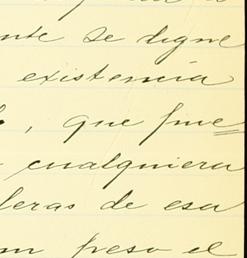 nte se digne
existencia
, que fue
cualquiera
leras de esa
peso el